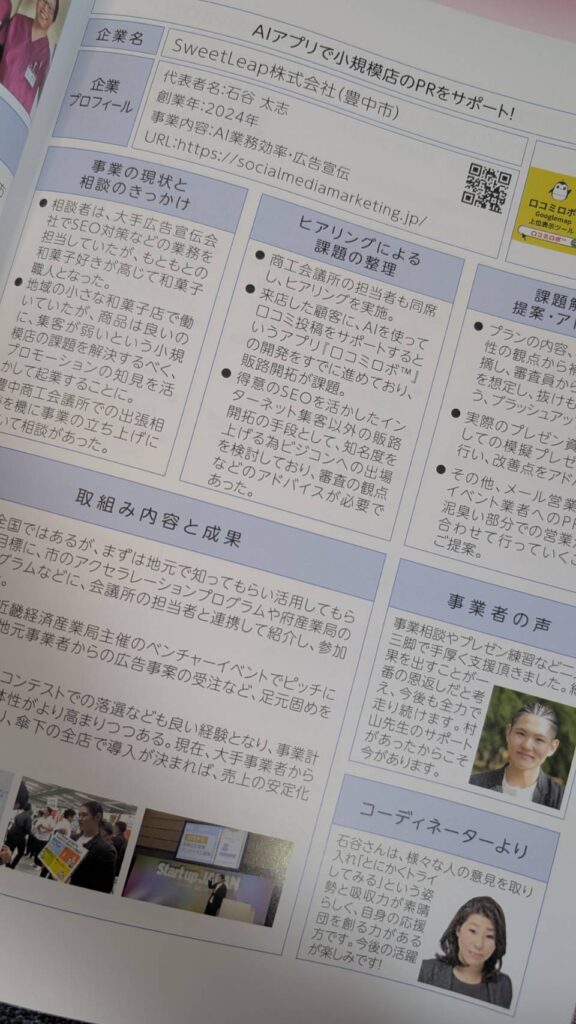 AIアプリで小規模店のPRをサポート!
企業名
SweetLeap株式会社(豊中市)
企業
プロフィール
代表者名:石谷 太志
創業年:2024年
事業内容:AI業務効率・広告宣伝
URL:https://socialmediamarketing.jp/
口コミロボ
Googlemap
上位表示ツール
口コミロボ
事業の現状と
相談のきっかけ
●相談者は、大手広告宣伝会
社でSEO対策などの業務を
担当していたが、もともとの
和菓子好きが高じて和菓子
職人となった。
●地域の小さな和菓子店で働
いていたが、商品は良いの
に、集客が弱いという小規
模店の課題を解決するべく、
プロモーションの知見を活
かして起業することに。
豊中商工会議所での出張相
を機に事業の立ち上げに
いて相談があった。
ヒアリングによる
課題の整理
●商工会議所の担当者も同席
し、ヒアリングを実施。
●来店した顧客に、AIを使って
口コミ投稿をサポートすると
いうアプリ『口コミロボ™』
の開発をすでに進めており、
販路開拓が課題。
●得意のSEOを活かしたイン
ターネット集客以外の販路
開拓の手段として、知名度を
上げる為ビジコンへの出場
を検討しており、審査の観点
などのアドバイスが必要で
あった。
課題解
提案・アド
●プランの内容、
性の観点から補
摘し、審査員から
を想定し、抜けも
う、ブラッシュアッ
●実際のプレゼン資
しての模擬プレゼ
行い、改善点をアド
●その他、メール営業
イベント業者へのP
泥臭い部分での営業
合わせて行っていくこ
ご提案。
取組み内容と成果
全国ではあるが、まずは地元で知ってもらい活用してもら
目標に、市のアクセラレーションプログラムや府産業局の
グラムなどに、会議所の担当者と連携して紹介し、参加
近畿経済産業局主催のベンチャーイベントでピッチに
地元事業者からの広告事案の受注など、足元固めを
コンテストでの落選なども良い経験となり、事業計
体性がより高まりつつある。現在、大手事業者から
り、傘下の全店で導入が決まれば、売上の安定化
Startup JAPAN
事業者の声
事業相談やプレゼン練習など二人
三脚で手厚く支援頂きました。結
果を出すことが一
番の恩返しだと考
え、今後も全力で
走り続けます。村
山先生のサポート
があったからこそ
今があります。
コーディネーターより
石谷さんは、様々な人の意見を取り
入れ「とにかくトライ
してみる」という姿
勢と吸収力が素晴
らしく、自身の応援
団を創る力がある
方です。今後の活躍
が楽しみです!